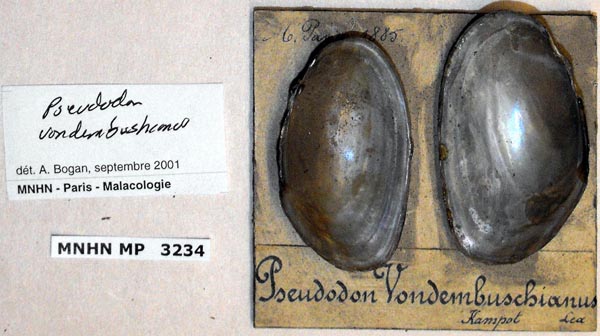 Pseudodon
vondembuschianus
dét. A. Bogan, septembre 2001
MNHN - Paris - Malacologie
MNHN MP 3234
1885
Pseudodon Vondembuschianus
Kampot Lea